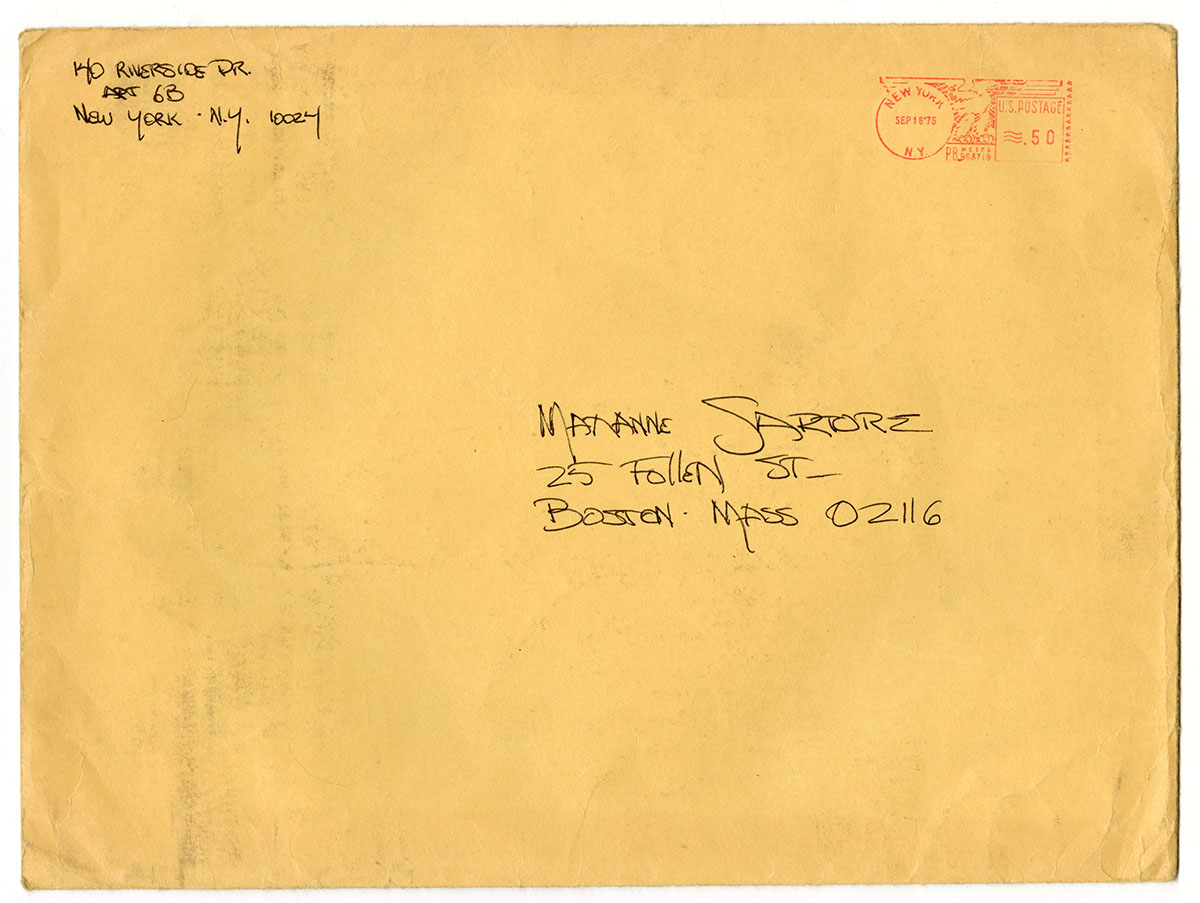 140 RIVERSIDE DR.
APT 6B
NEW YORK · N.Y. 10024
NEW YORK
SEP 16 '75
N.Y.
U.S. POSTAGE
.50
P.B. METER
MAXANNE SARTORE
25 FOLLEN ST_
BOSTON · MASS 02116